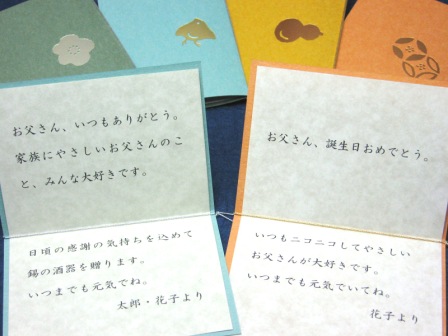 お父さん、いつもありがとう。
家族にやさしいお父さんのこ
と、みんな大好きです。
日頃の感謝の気持ちを込めて
錫の酒器を贈ります。
いつまでも元気でね。
太郎・花子より
お父さん、誕生日おめでとう。
いつもニコニコしてやさしい
お父さんが大好きです。
いつまでも元気でいてね。
花子より